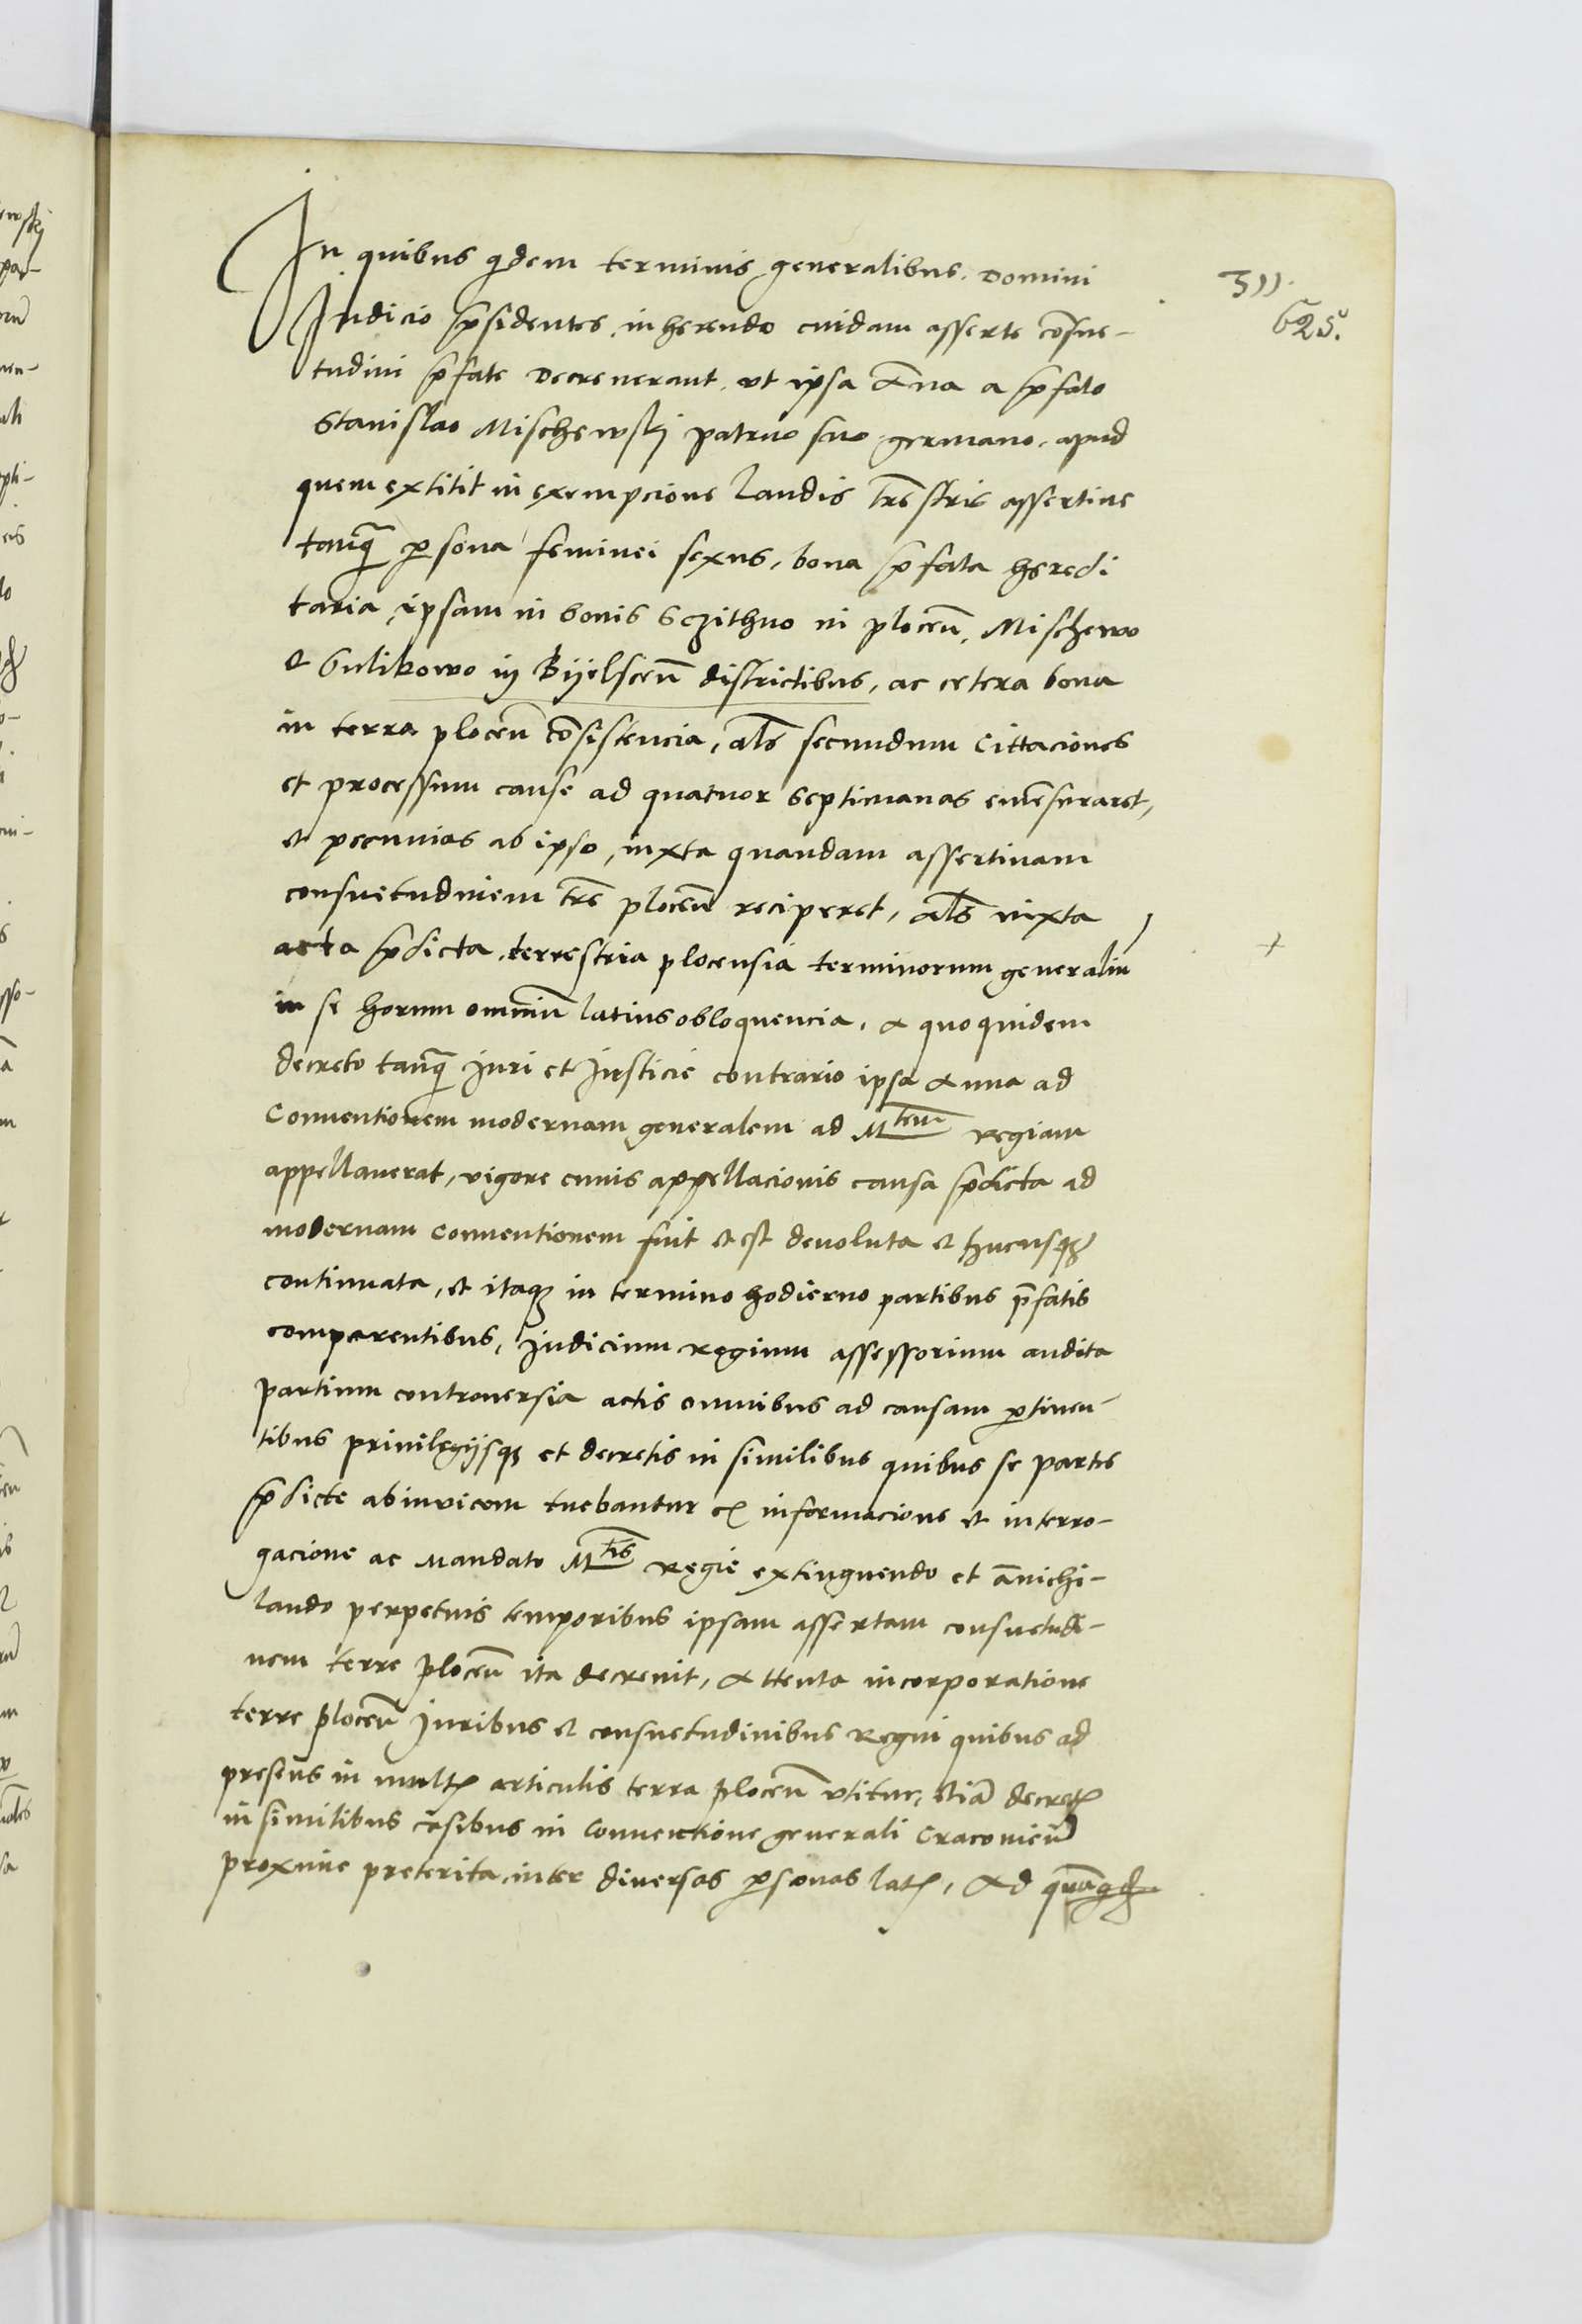 In quibus qdem terminis generalibus. Domini
311.
625.
Judicio p̄sidentes, inherendo cuidam asserte cōsue-
tudini p̄fate Decreuerant, vt ipsa Āna a p̄fato
Stanislao Mischewskj patruo suo germano, apud
quem extitit in exempcione laudis trēstris assertiue
tanq̄ p̱sona feminei sexus, bona p̄fata heredi
taria, ipsam in bonis Sczithno in ploceñ, Mischewo
et Gulikowo in Byelsceñ districtibus, ac cetera bona
in terra ploceñ cōsistencia, als̄ secundum Cittaciones
et processum cause ad quatuor Septimanas emēsuraret,
et pecunias ab ipso, iuxta quandam assertiuam
consuetudinem trē ploceñ reciperet, als̄ iuxta
acta p̄dicta terrestria plocensia terminorum generaliū
+
in se horum omniū latius obloquencia, A quo quidem
decreto tanq̄ Juri et Justicie contrario ipsa Anna ad
Conuentionem modernam generalem ad Mtem Regiam
appellauerat, vigore cuius appellacionis causa p̄dicta ad
modernam Conuentionem fuit et est deuoluta et hucusqȝ
continuata, et itaqȝ in termino hodierno partibus p̄fatis
comparentibus, Judicium Regium assessorium audita
partium controuersia actis omnibus ad causam p̱tinen-
tibus priuilegijsqȝ et decretis in similibus quibus se partes
p̄dicte abinuicem tuebantur ex informacione et interro-
gacione ac Mandato Mtis Regie extinguendo et ānichi-
lando perpetuis temporibus ipsam assertam consuetudi-
nem terre ploceñ ita decreuit, Attenta incorporatione
terre ploceñ Juribus et consuetudinibus Regni quibus ad
presens in multꝭ articulis terra ploceñ vtitur, etiā decretꝭ
in similibus casibus in Conuentione generali Cracouieñ
proxime preterita, inter diuersas p̱sonas latꝭ, Ad